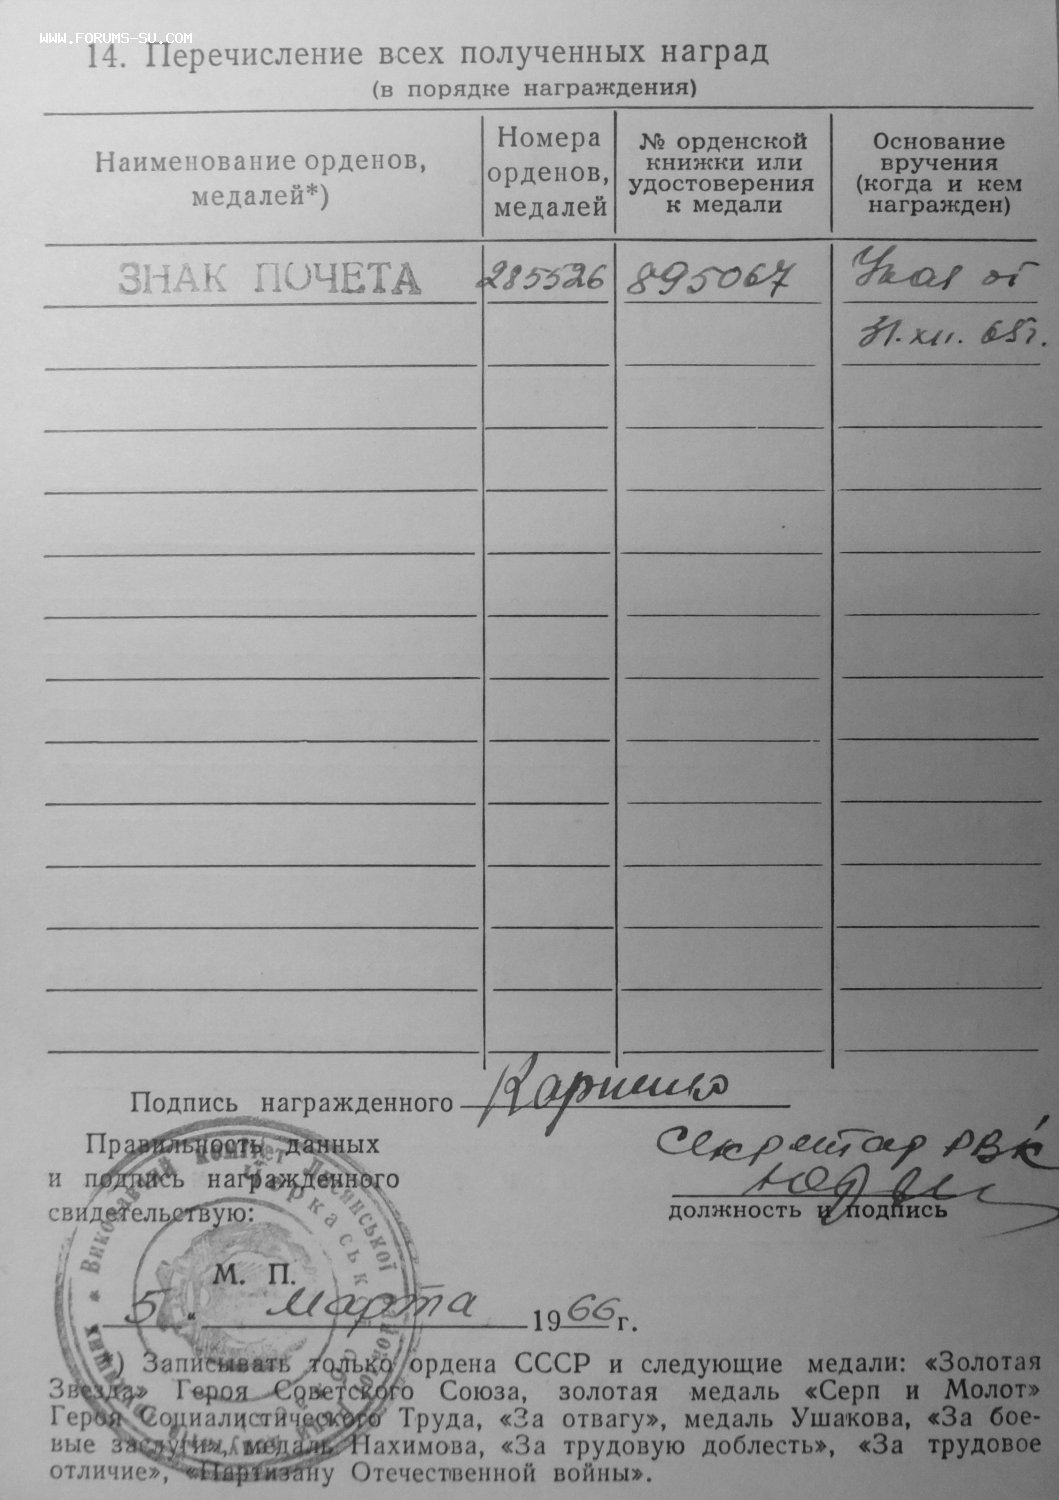 WWW.FORUMS-SU.COM
14. Перечисление всех полученных наград
(в порядке награждения)
Наименование орденов,
медалей*)
Номера
орденов,
медалей
№ орденской
книжки или
удостоверения
к медали
Основание
вручения
(когда и кем
награжден)
ЗНАК ПОЧЕТА 285526 895067 Указ от
31.XII.65г.
Подпись награжденного
Правильность данных
и подпись награжденного
свидетельствую:
Секретар РВК
должность и подпись
М. П.
5 " марта 1966 г.
*) Записывать только ордена СССР и следующие медали: «Золотая
Звезда» Героя Советского Союза, золотая медаль «Серп и Молот»
Героя Социалистического Труда, «За отвагу», медаль Ушакова, «За бое-
вые заслуги», медаль Нахимова, «За трудовую доблесть», «За трудовое
отличие», «Партизану Отечественной войны».
* Виконавчий комітет Лисянської районної
Черкаської